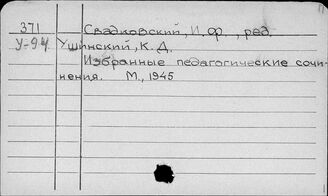 371 Свадковский, И. Ф., ред.
У-94 Ушинский, К. Д.
Избранные педагогические сочи-
нения. М., 1945